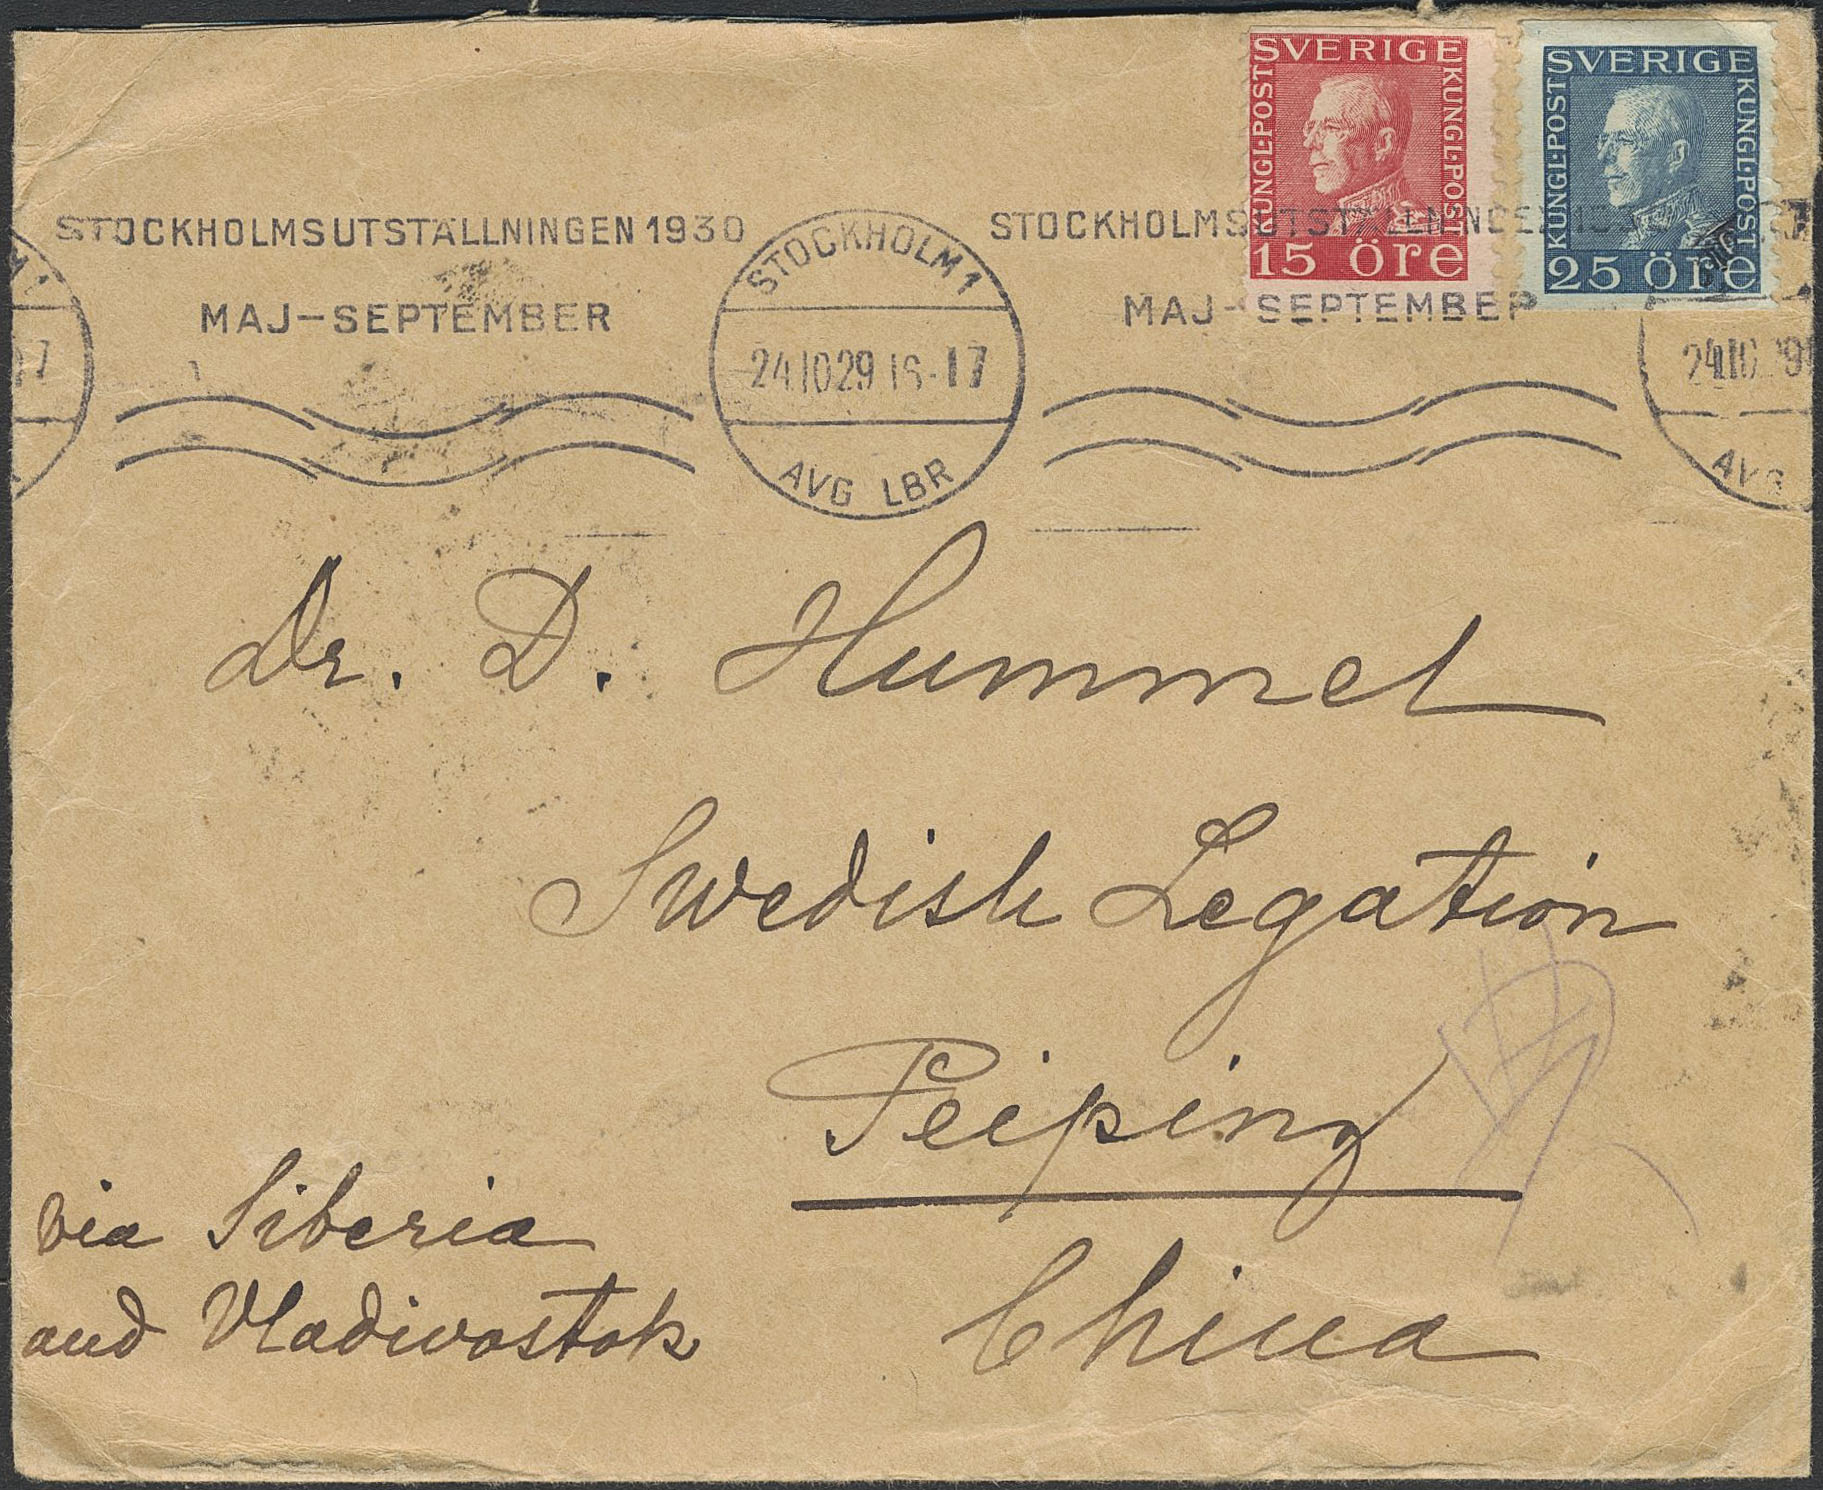 SVERIGE
KUNGL·POST
KUNGL·POST
15 öre
SVERIGE
KUNGL·POST
KUNGL·POST
25 öre
STOCKHOLMSUTSTÄLLNINGEN 1930
MAJ–SEPTEMBER
STOCKHOLM 1
24 10 29 16-17
AVG LBR
STOCKHOLMSUTSTÄLLNINGEN
MAJ–SEPTEMBER
24 10
AVG
Dr. D. Hummel
Swedish Legation
Peiping
China
via Siberia
and Vladivostok